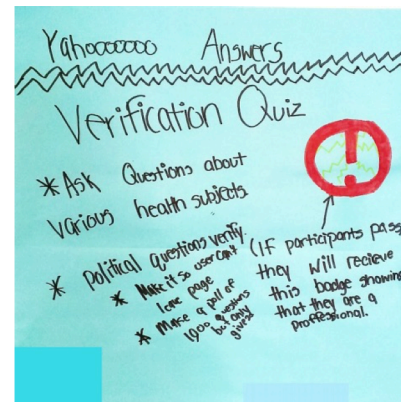 Yahooooooo Answers
Verification Quiz
* Ask Questions about
various health subjects
* Political questions verify.
* Make it so user can't
leave page
* Make a poll of
1900 questions
but only
gives 1
(IF participants pass
they will recieve
this badge showing
that they are a
proffessional.